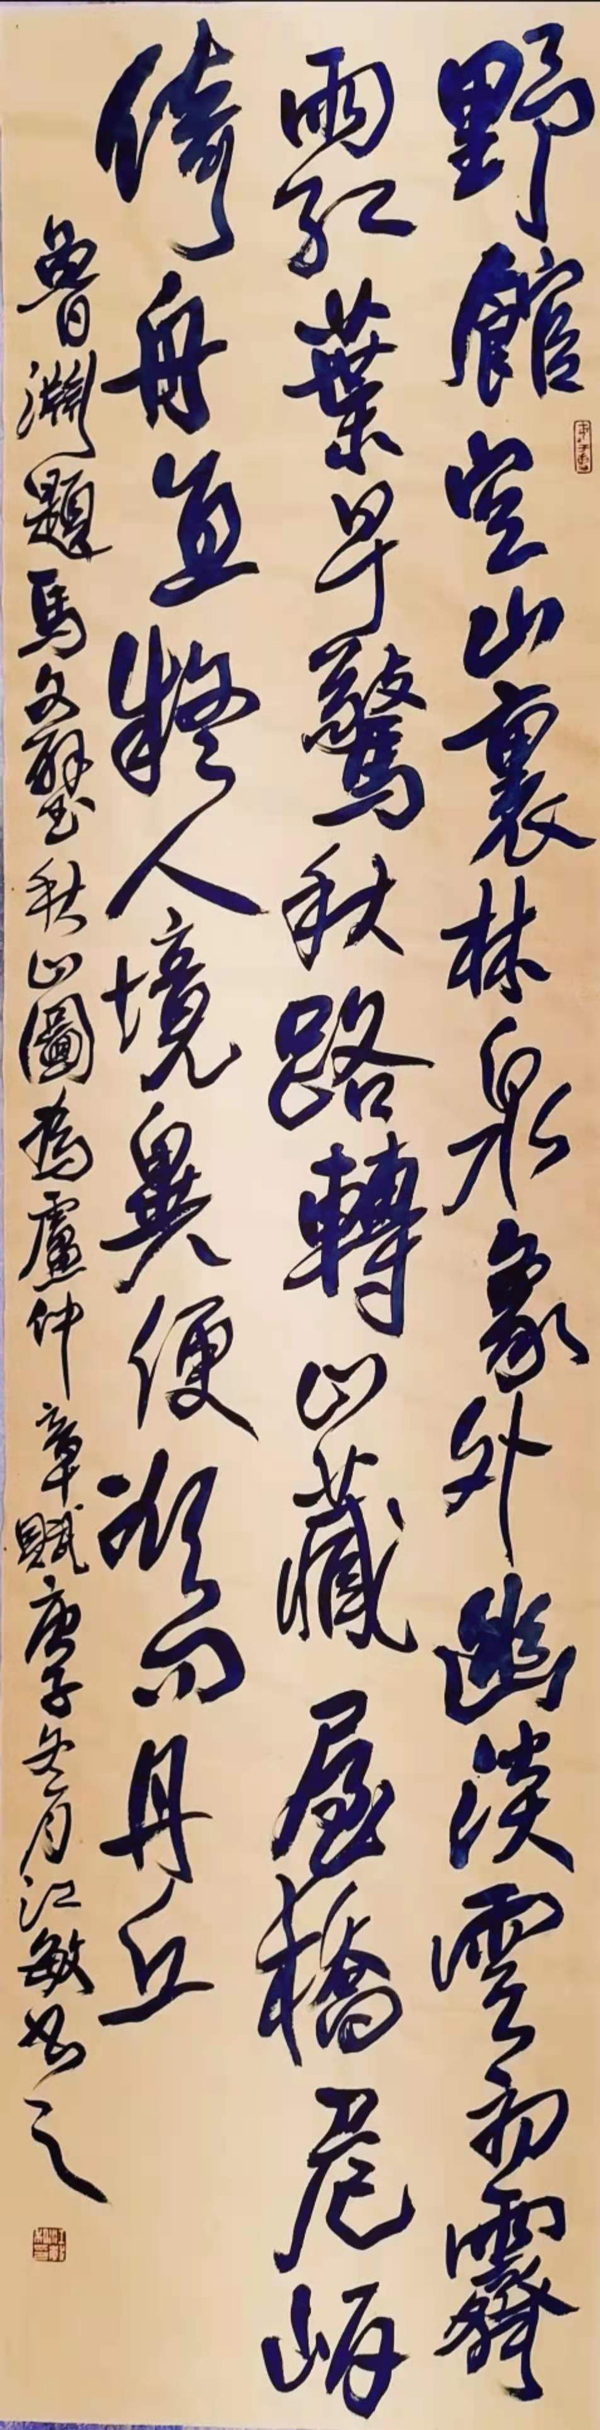 野館空山裏林泉象外幽淡雲初霽
雨紅葉早驚秋路轉山藏屋橋危岸
倚舟直疑人境異便欲問丹丘
魯淵題馬文璧秋山圖為盧仲章賦庚子冬月江敏書之